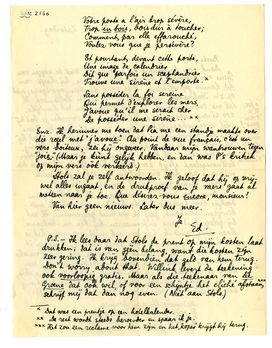 Votre poste a l'air trop sévère,
Trop en bois, bois dur à toucher;
Comment, par elle effarouché,
Voulez-vous que je persévère?
Et pourtant, devant cette porte,
Une image de calendrier
Dit que parfois un scaphandrier
Trouve une sirène et l'emporte. **
Sans posséder la foi sereine
Qui permet d'explorer les mers,
J'avoue qu'il me serait cher
De posséder une sirène... ***
Enz. Ik herinner me toen dat Fa me een standje maakte over
die regel met "j'avoue". Au point de vue français, c'est un
vers boiteux, zei hij ongeveer. Vandaar mijn wantrouwen tegen
(Maar je kunt gelijk hebben, en dan was P's kritiek
op mijn vers ook verkeerd.)
Stols zal je zelf antwoorden. Ik geloof dat hij op vrij-
wel alles ingaat, en de drukproef van je vers gaat al
besten naar je toe. Que désirez-vous encore, monsieur?
Van hier geen nieuws. Later dus meer.
Je
Ed.
P.S. - Ik lees daar dat Stols de prent op mijn kosten laat
drukken; dat is van geen belang, want die kosten zijn
zeer gering. Ik krijg bovendien dat geld van hem terug.
Don't worry about that. Willink levert de teekening
ook vooreerst gratis. Maar als die teekenaar van de
groene dat ook wil, of voor een schijntje het cliché afstaan,
schrijf mij dat dan nog even. (Niet aan Stols.)
* Dat was een prentje op een hotelkalender.
** De rest wordt steeds beroerder en spaar ik je.